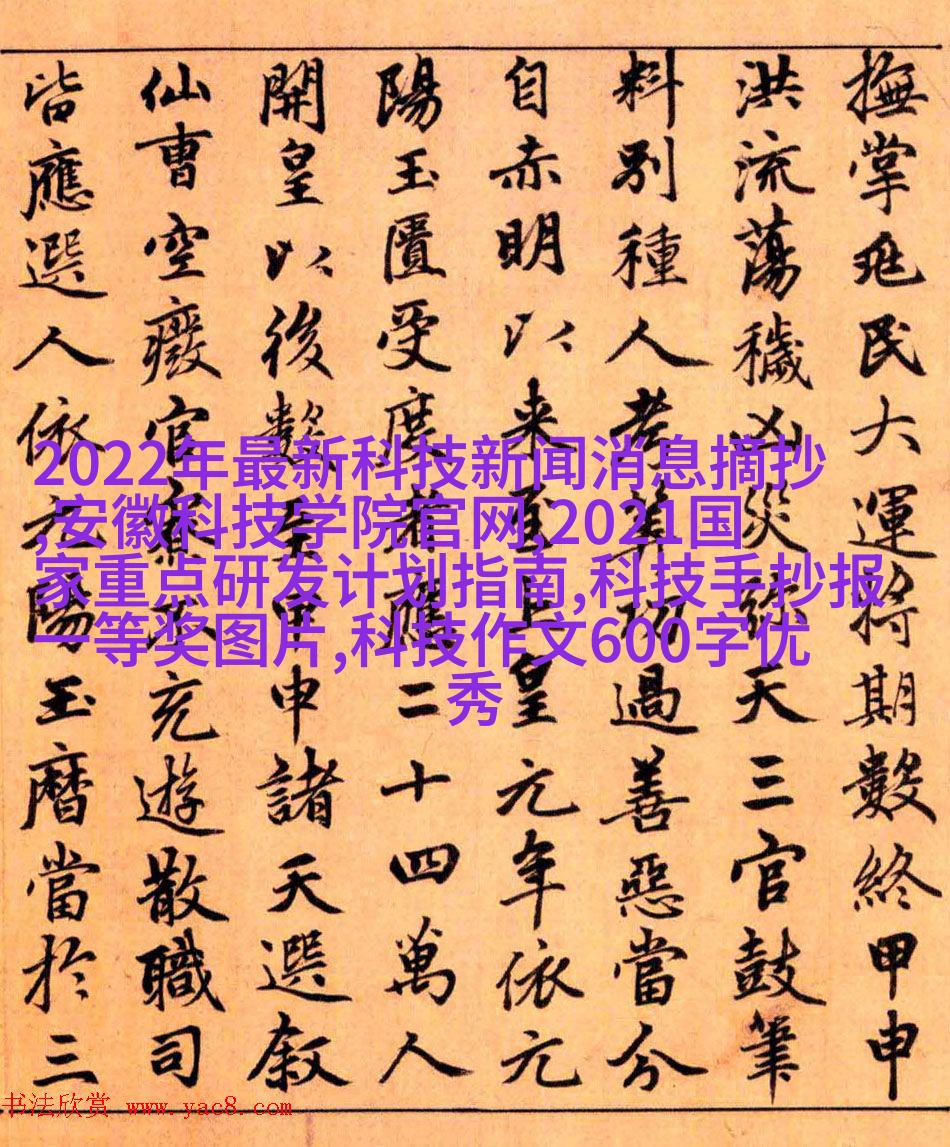 撫掌兆民大運將期數終甲申
洪流蕩穢凶災弥天三官鼓筆
料別種人考算功過善惡當分
自赤明以來至上皇元年依元
陽玉匱受度者應二十四萬人
開皇以後數至甲申諸天選叙
仙曹空廢官僚不充遊散職司
皆應選人依元陽玉曆當於三
2022年最新科技新闻消息摘抄
,安徽科技学院官网,2021国
家重点研发计划指南,科技手抄报
一等奖图片,科技作文600字优
秀
书法欣赏 www.yac8.com